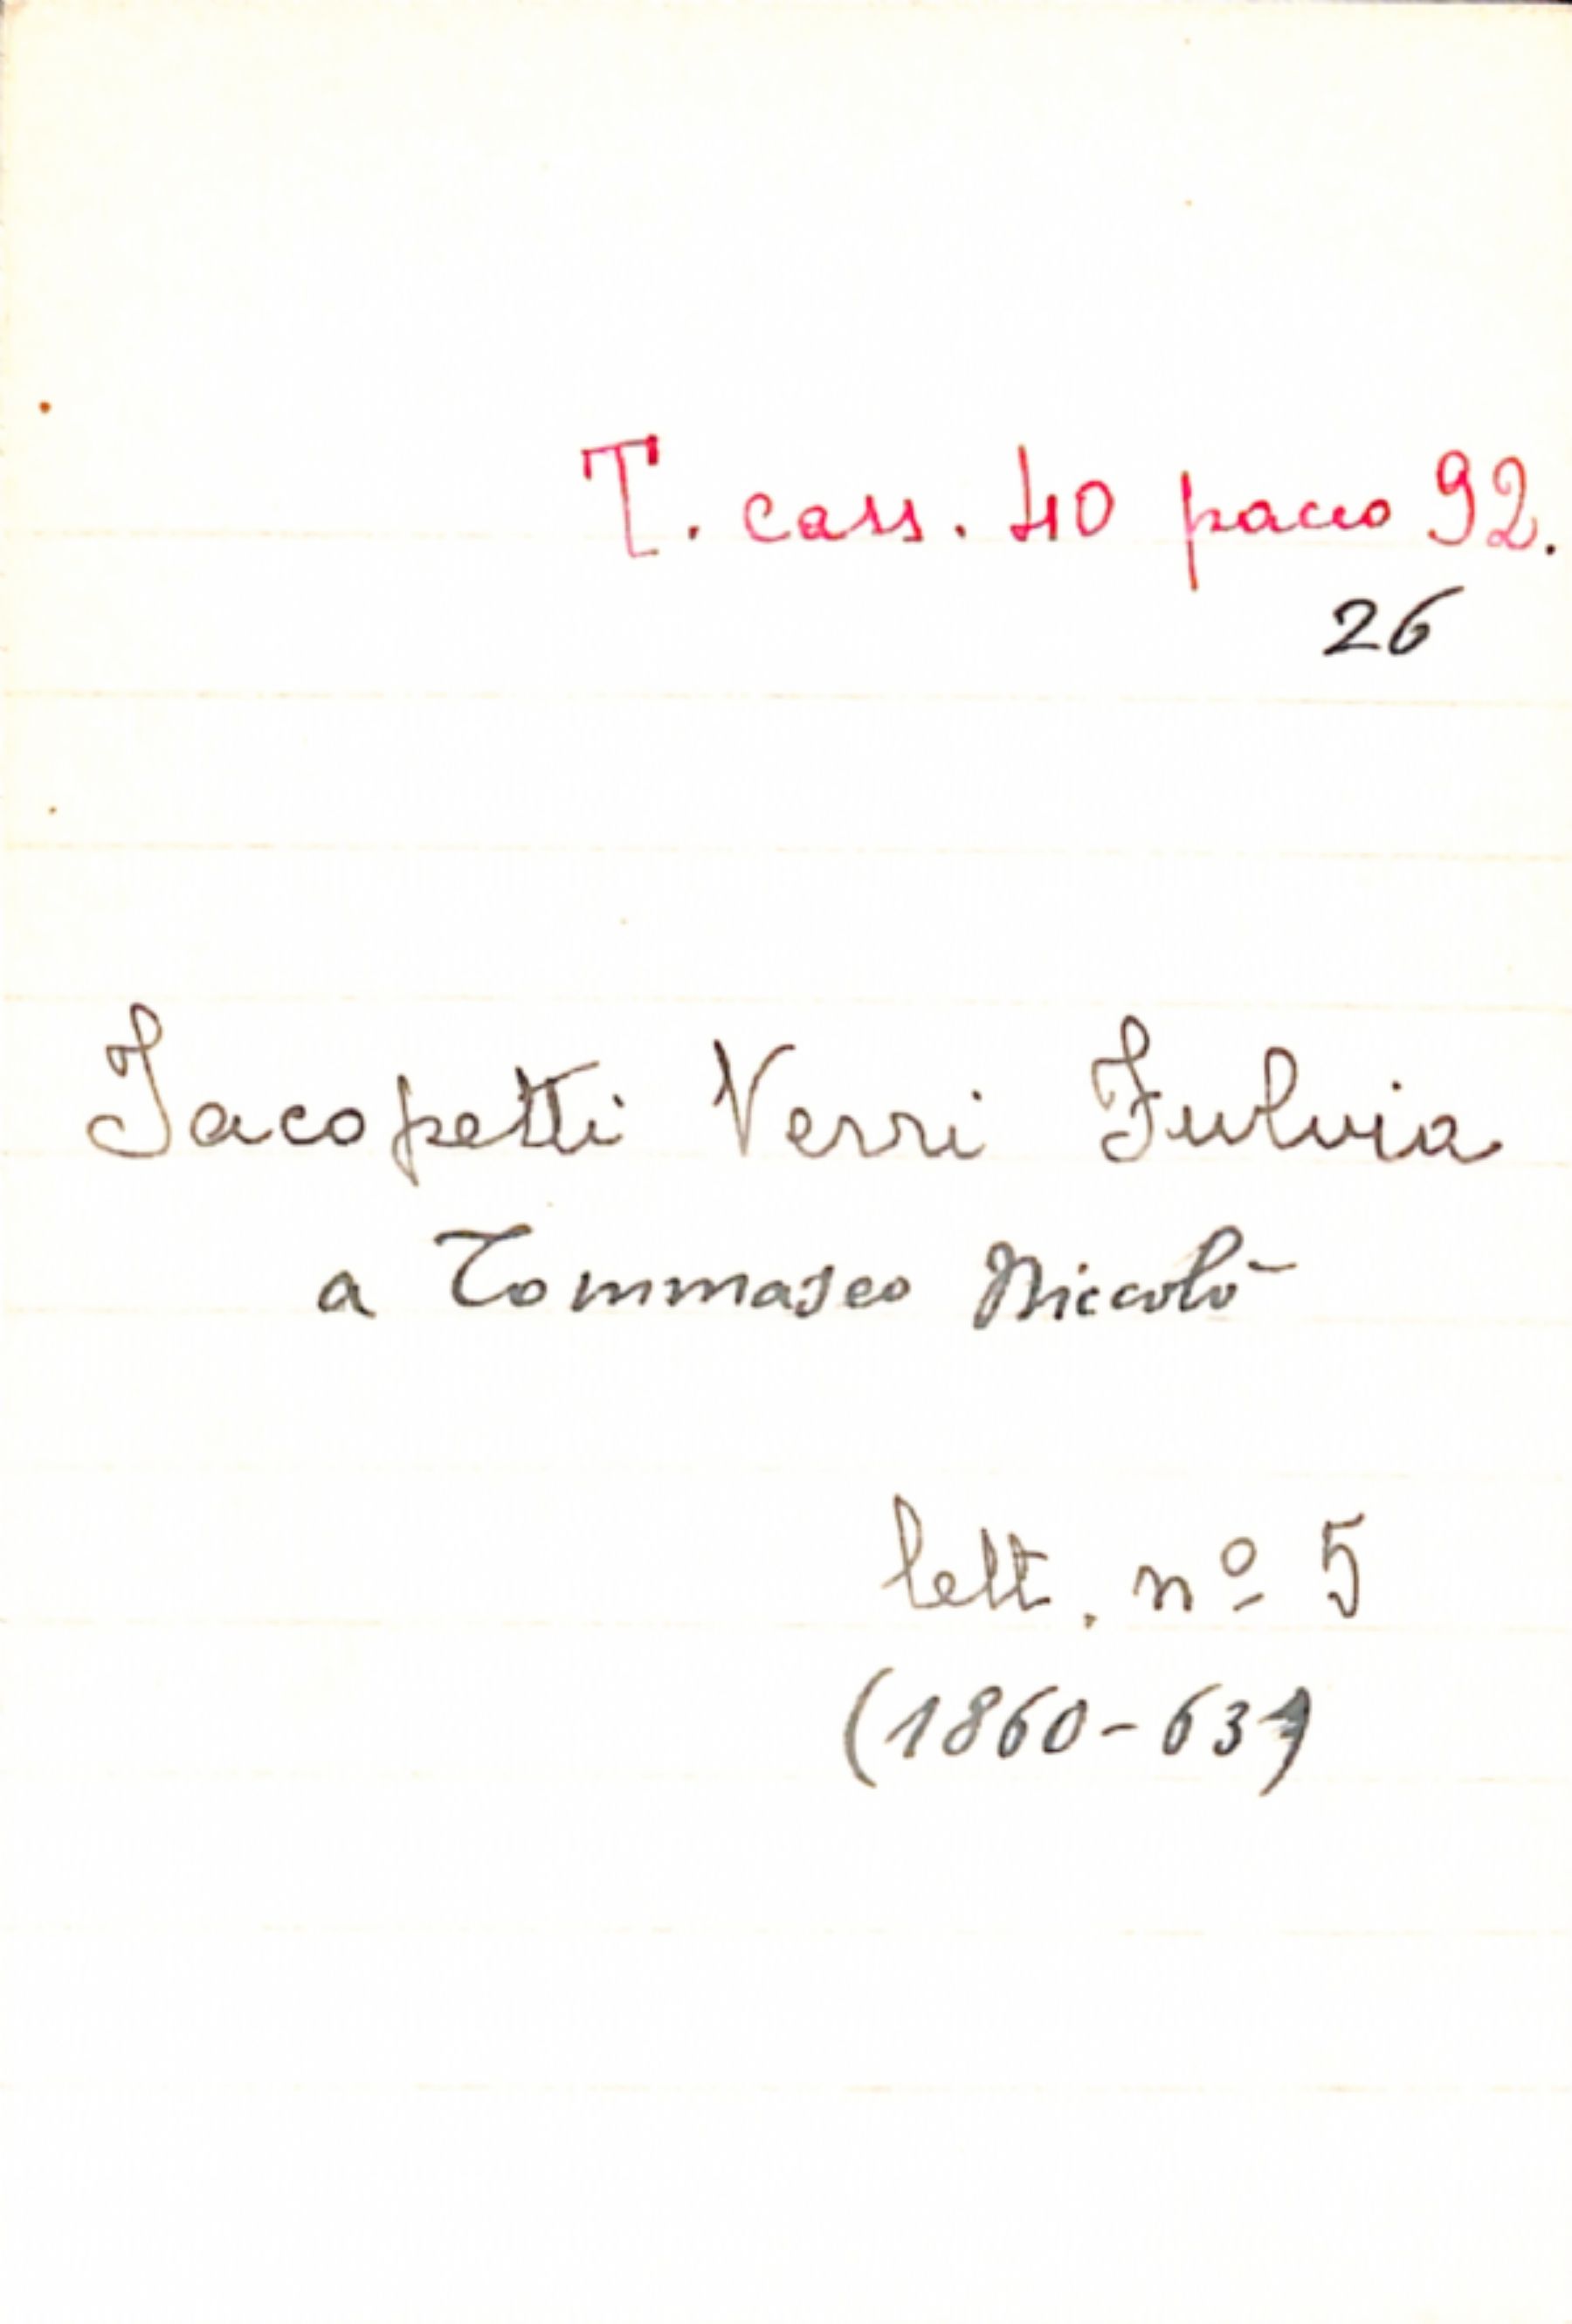 T. cass. 40 pacco 92.
26
Jacopetti Verri Fulvia
a Tommaseo Niccolò
lett. nº 5
(1860-63)